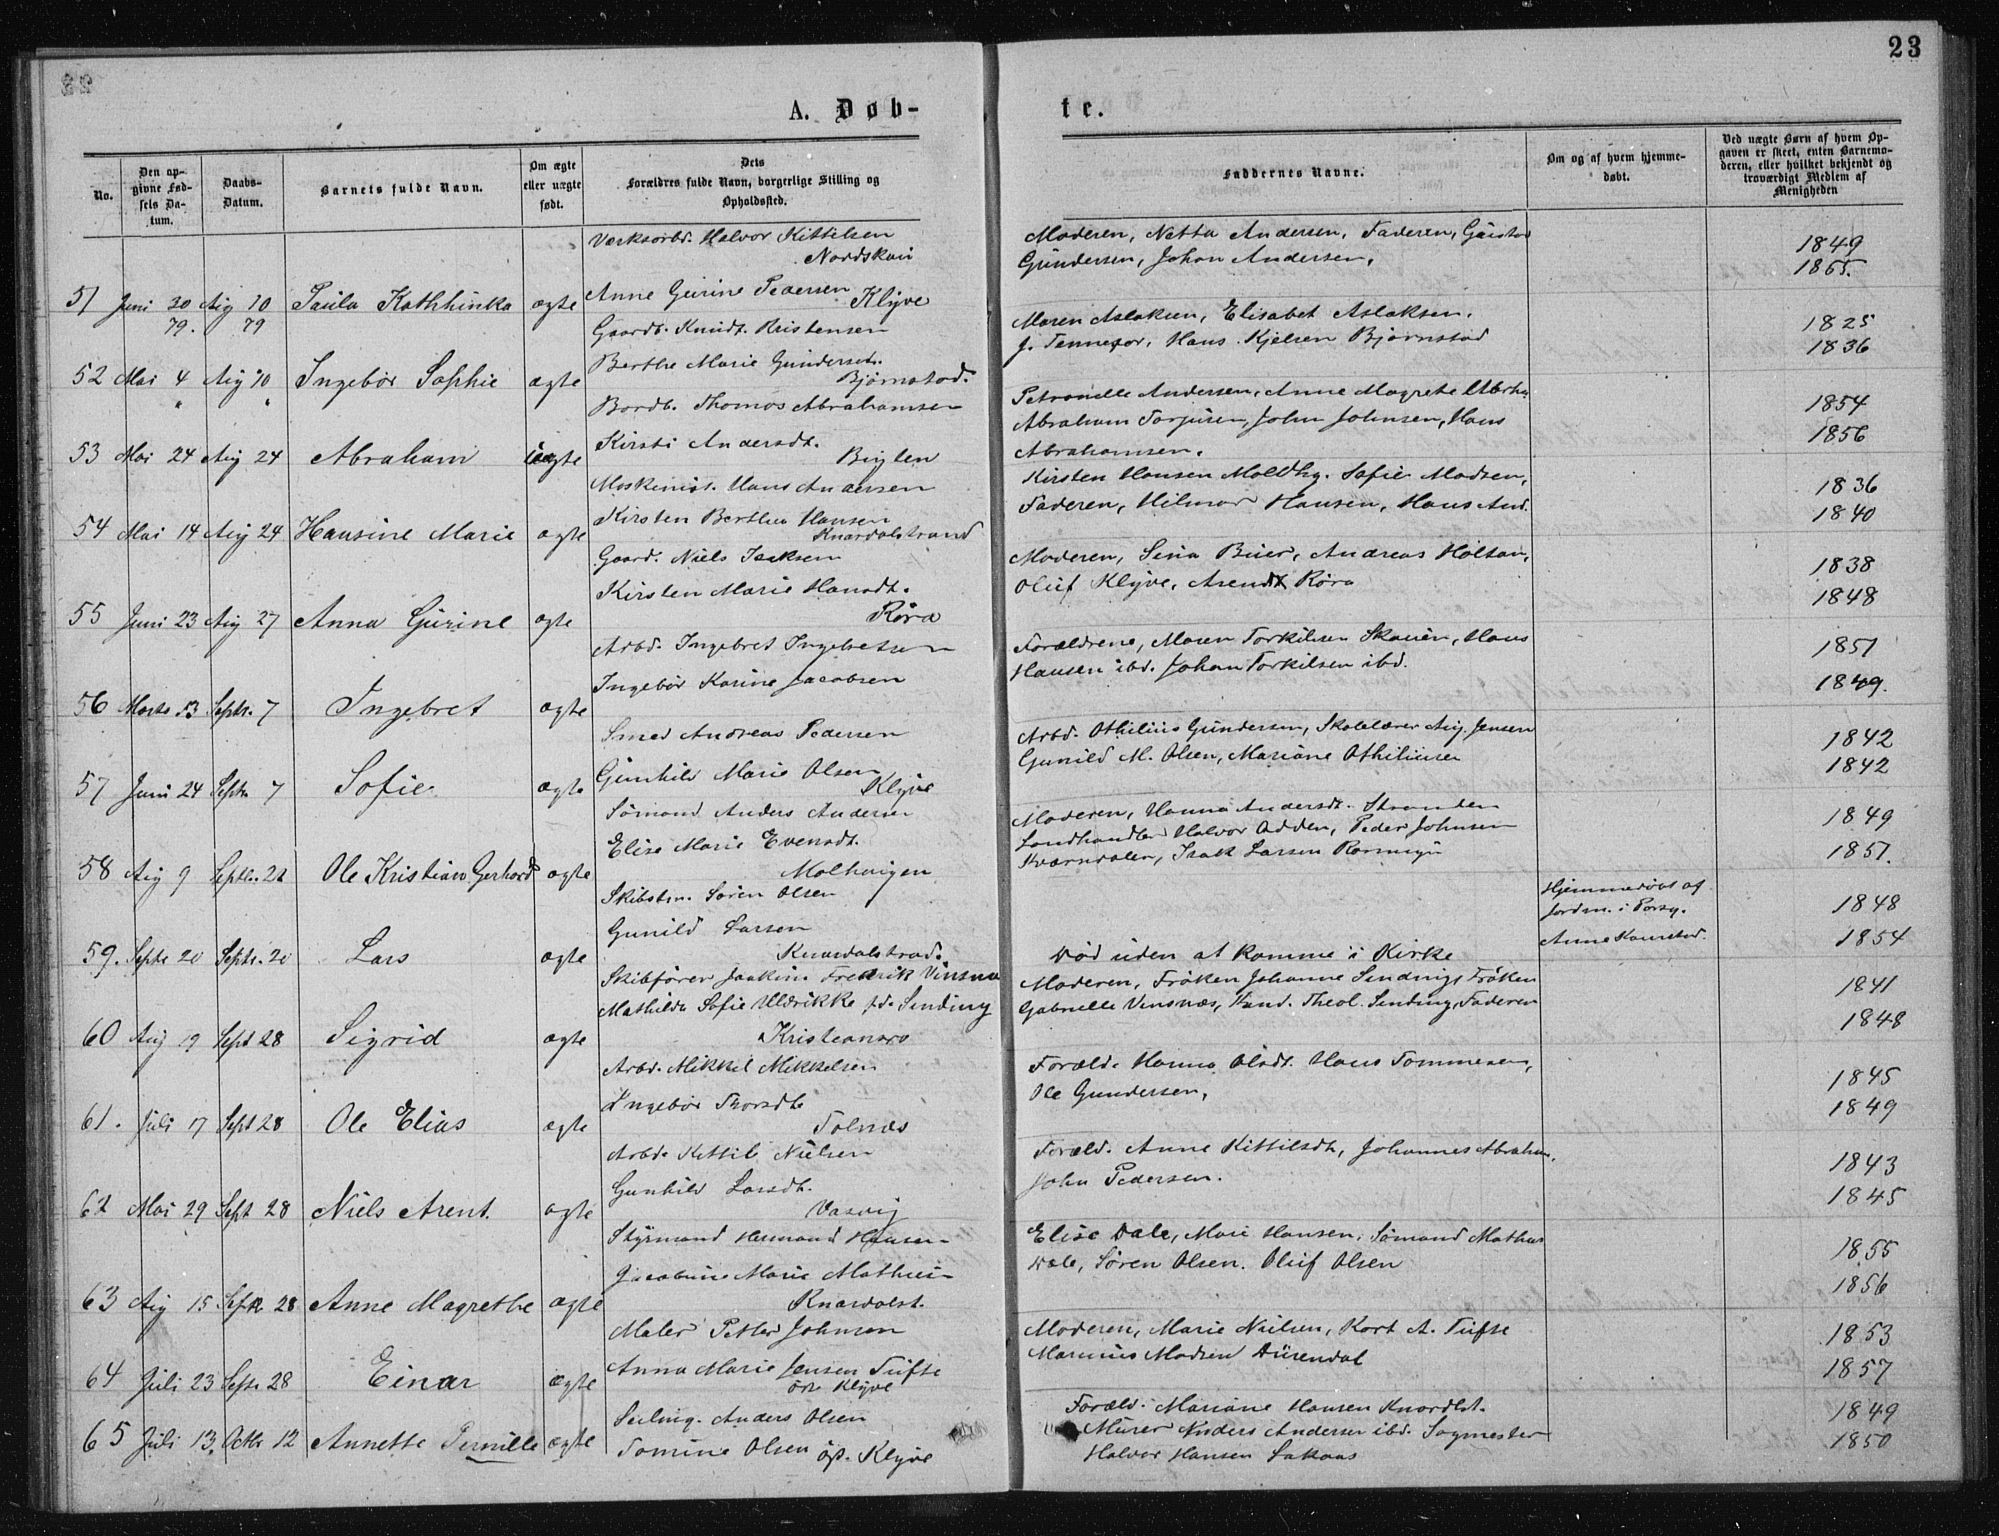 23
A. Døb-
te.
No.
Den op-
givne Fød-
sels Da-
tum.
Daabs-
Datum.
Barnets fulde Navn.
Om ægte
eller uægte
født.
Dets
Forældres fulde Navn, borgerlige Stilling og
Opholdssted.
Faddernes Navne.
Om og af hvem hjemme-
døbt.
Ved uægte Børn af hvem Op-
gaven er skeet, enten Barnemo-
deren, eller hvilket bekjendt og
troværdigt Medlem af
Menigheden
Værksarbd. Halvor Kittilsen
Nordskau
51 Juni 30 Aug 10 Paula Kathhinka ægte Anne Gurine Pedersen
79. 79 Klyve
Moderen, Netta Andersen, Faderen, Gustav
Gundersen, Johan Andersen,
1849
1865.
Gaardb. Knudt Kristensen
52 Mai 4 Aug 10 Ingebør Sophie ægte Berthe Marie Gundersen
" " Bjørnstad.
Maren Aslaksen, Elisabet Aslaksen,
J. Tennefor, Hans Kjelsen Bjørnstad
1825
1836
Bordb. Thomas Abrahamsen
53 Mai 24 Aug 24 Abraham uægte Kirsti Andersdt.
Petronelle Andersen, Anne Magrete
Abraham Torjusen, John Johnsen, Hans
Abrahamsen.
1854
1856
Maskinist. Hans Andersen
54 Mai 14 Aug 24 Hansine Marie ægte Kirsten Berthea Hansen
Knardalstrand
Kirsten Hansen Moldhg. Sofie Madsen,
Faderen, Hilmar Hansen, Hans And.
1836
1840
Gaard. Niels Isaksen
55 Juni 23 Aug 27 Anna Gurine ægte Kirsten Marie Hansdt.
Røra
Moderen, Sina Buer, Andreas Holtan,
Oluf Klyve, Arendt Røra
1838
1848
Arbd. Ingebret Ingebretsen
56 Marts 13 Septr. 7 Ingebret ægte Ingebør Karine Jacobsen
Forældrene, Maren Torkilsen Skauen, Hans
Hansen ibd. Johan Torkilsen ibd.
1851
1849.
Smed Andreas Pedersen
57 Juni 24 Septr 7 Sofie ægte Gunhild Marie Olsen
Klyve
Arbd. Othilius Gundersen, Skolelærer Aug. Jensen
Gunild M. Olsen, Mariane Othiliusen
1842
1842
Sømand Anders Andersen
58 Aug 9 Septr. 21 Ole Kristian Gerhard ægte Elise Marie Evensdt.
Molhaugen
Moderen, Hanna Andersdt. Stranden
Landhandler Halvor Odden, Peder Johnsen
Kværndalen, Isak Larsen
1849
1851.
Skibstm. Søren Olsen
59. Septr 20 Septr. 20 Lars ægte Gunild Larsen
Knardalstrand.
Hjemmedøbt af
Jordm. i Porsg.
Anne Kamstad.
Død uden at komme i Kirke
1848
1854
Skibfører Joakim Fredrik Vinsnæs
60 Aug 19 Sept 28 Sigrid ægte Mathilda Sofie Uldrikke fd. Sinding
Kristiansro
Moderen, Frøken Johanne Sinding, Frøken
Gabrielle Vinsnæs, Kand. Theol. Sinding, Faderen
1841
1848
Arbd. Mikkel Mikkelsen
61. Juli 17 Sept 28 Ole Elias ægte Ingebør Thorsdt
Tolnæs
Foræld. Hanna Olsdt. Hans Tommesen,
Ole Gundersen,
1845
1849
Arbd. Kittil Nielsen
62 Mai 29 Sept 28 Niels Arent. ægte Gunhild Larsdt.
Vasvig
Foræld. Anne Kittilsdt, Johannes Abraham.
John Pedersen.
1843
1845
Styrmand Hermand Hansen
63 Aug 15 Septr 28 Anne Magrethe ægte Jacobine Marie Mathisen
Knardalst.
Elise Dale, Mari Hansen, Sømand Mathias
Dale, Søren Olsen. Oluf Olsen
1855
1856
Maler Petter Johnsen
64 Juli 23 Septr 28 Einar ægte Anna Marie Jensen Tufte
Klyve
Moderen, Marie Nielsen, Kort A. Tufte
Marinius Madsen Durendal
1853
1857
Seiling. Anders Olsen
65 Juli 13. Oktr 12 Annette Pernille ægte Tomine Olsen øp. Klyve
Foræld. Mariane Hansen Knardlst.
Murer Anders Andersen ibd. Sagmester
Halvor Hansen
1849
1850